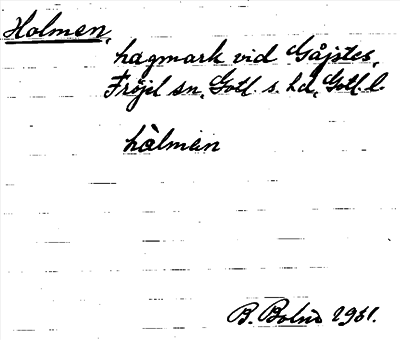 Holmen,
hagmark vid Gåjstes,
Fröjel sn, Gotl. s. hd, Gotl. l.
hàlmεn
B. Bolin 1931.